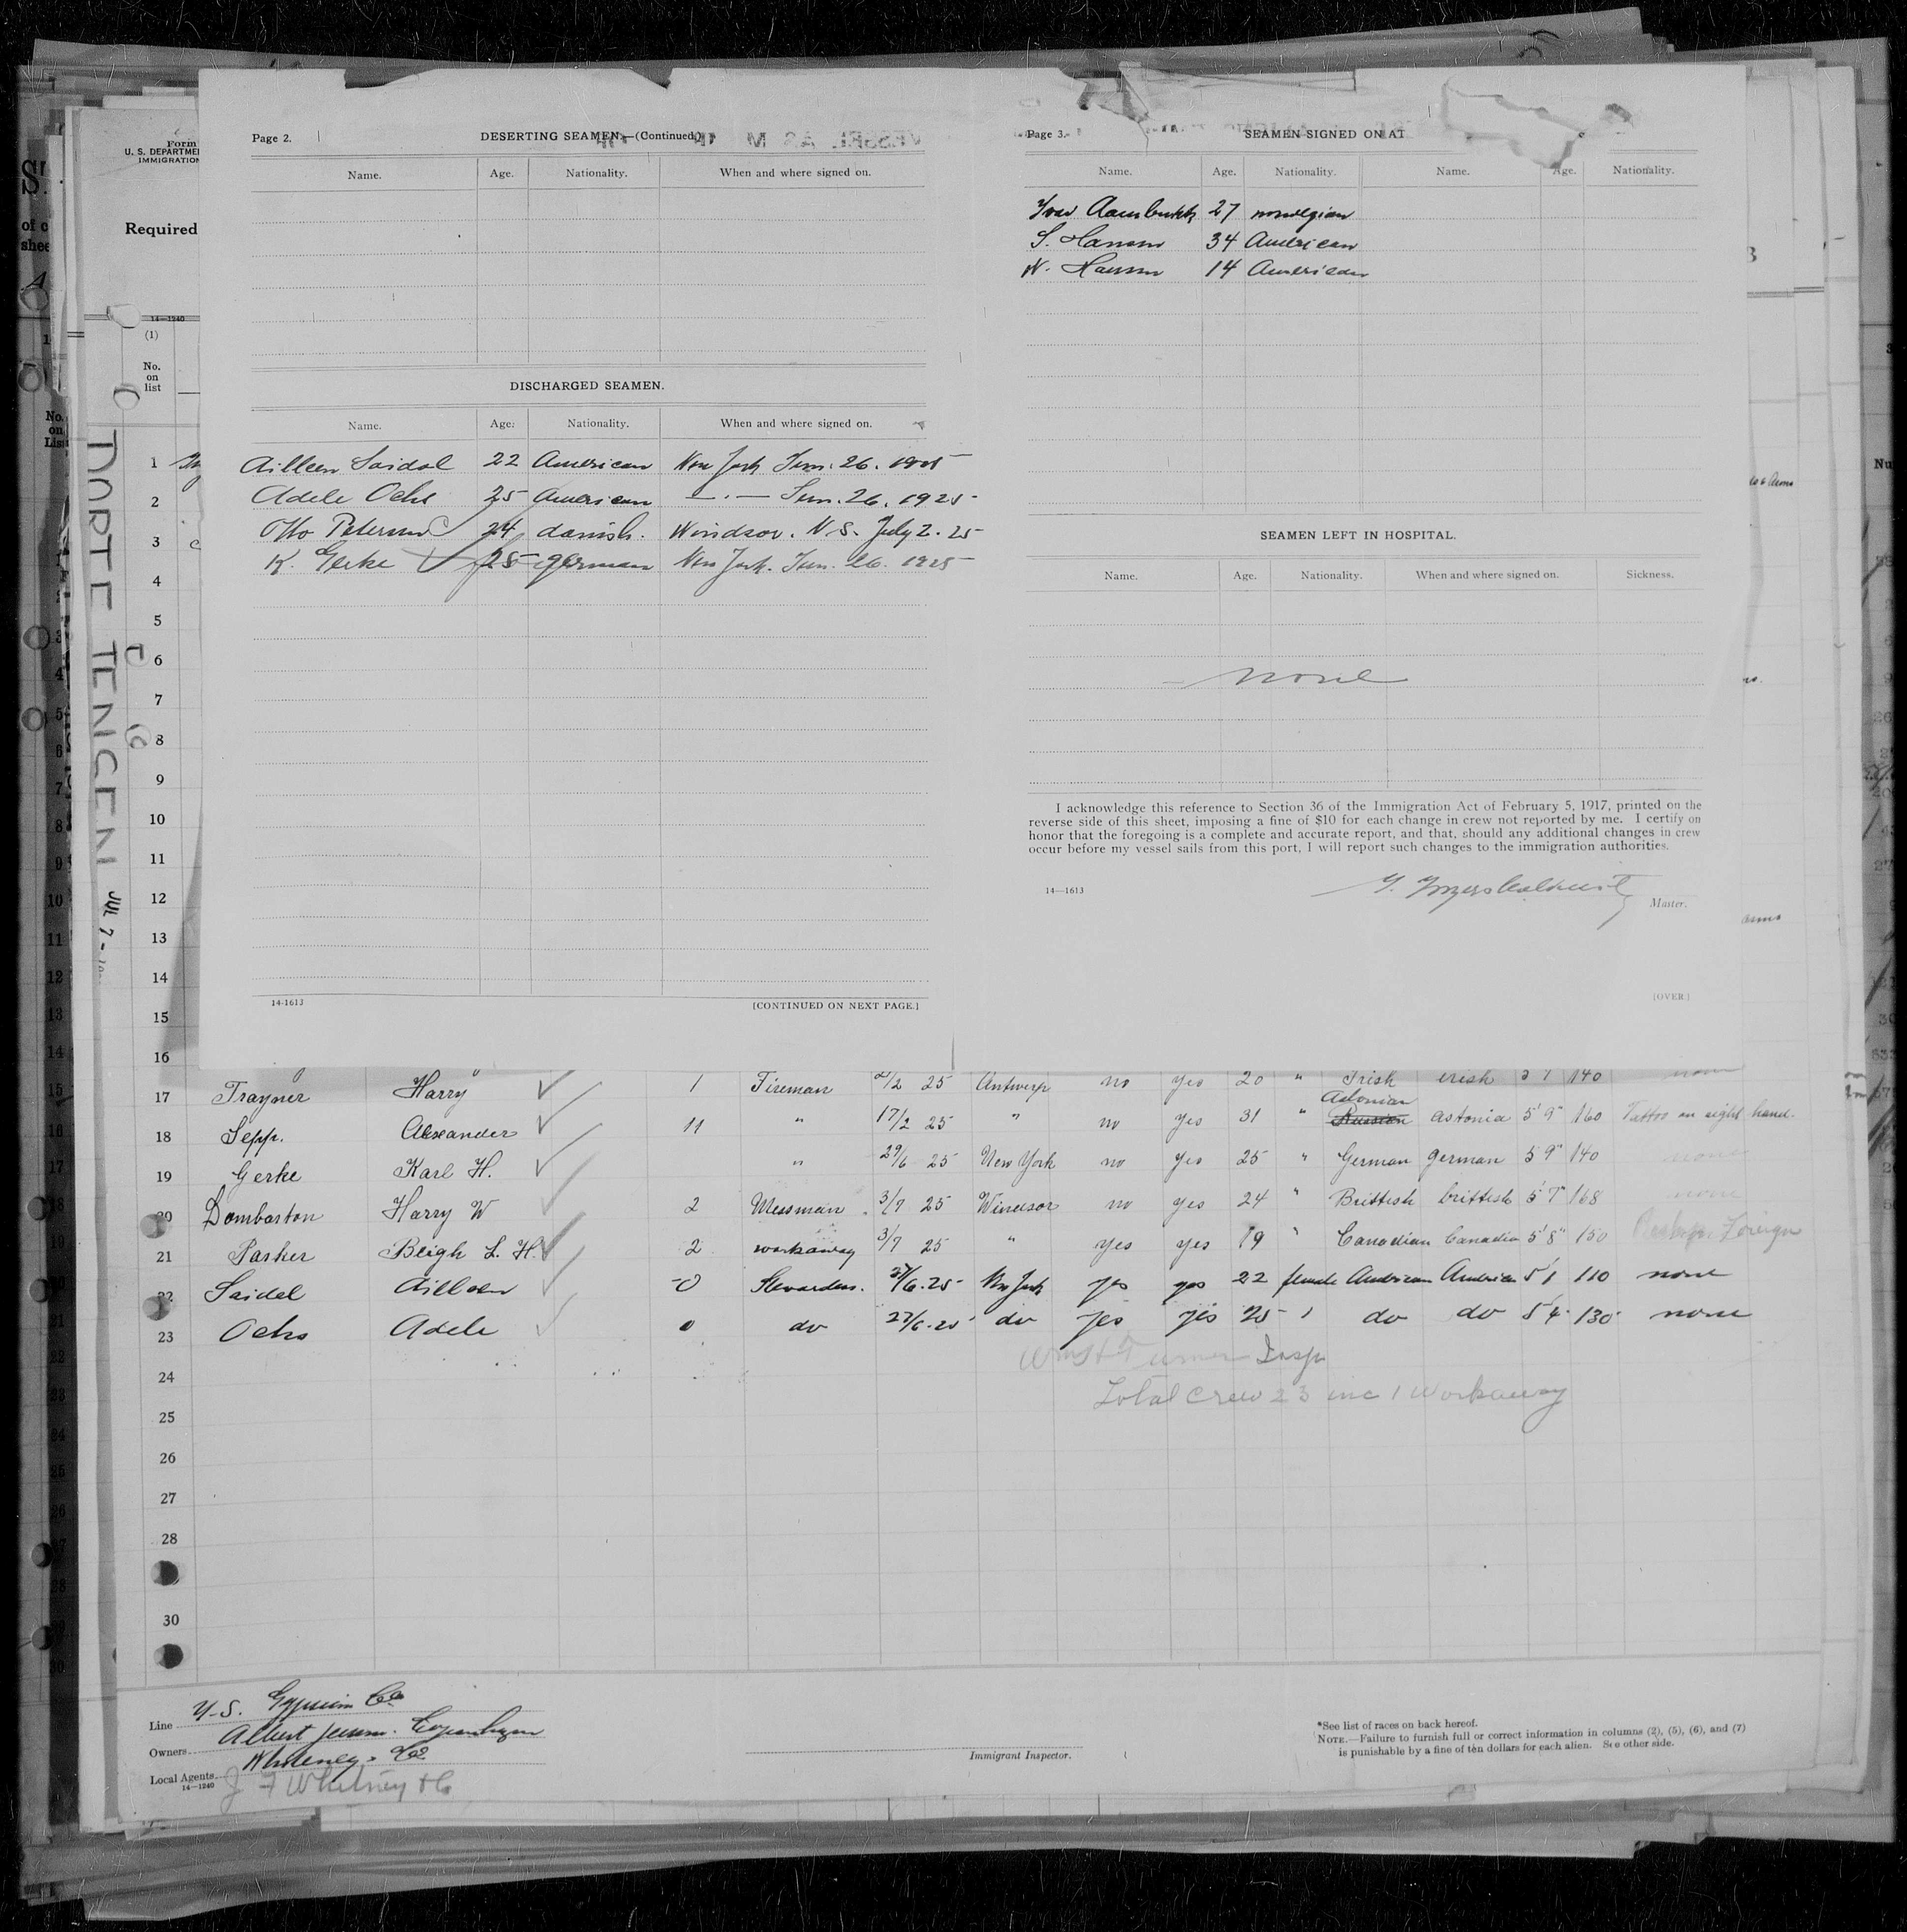 Page 2.
DESERTING SEAMEN.—(Continued.)
Name. Age. Nationality. When and where signed on.
DISCHARGED SEAMEN.
Name. Age. Nationality. When and where signed on.
Ailleen Saidal 22 American New York Jun. 26. 1925
Adele Ochs 25 American —.— Jun. 26. 1925
Otto Petersen 24 danish. Windsor. N.S. July 2. 25
K. Gerke 25 german New York. Jun. 26. 1925
14-1613
[CONTINUED ON NEXT PAGE.]
Page 3.
SEAMEN SIGNED ON AT
Name. Age. Nationality. Name. Age. Nationality.
27 norwegian
S. Hansen 34 American
N. Hansen 14 American
SEAMEN LEFT IN HOSPITAL.
Name. Age. Nationality. When and where signed on. Sickness.
none
I acknowledge this reference to Section 36 of the Immigration Act of February 5, 1917, printed on the
reverse side of this sheet, imposing a fine of $10 for each change in crew not reported by me. I certify on
honor that the foregoing is a complete and accurate report, and that, should any additional changes in crew
occur before my vessel sails from this port, I will report such changes to the immigration authorities.
14—1613
Master.
[OVER.]
Form
U. S. DEPARTME
IMMIGRATION
Required
14—1240
(1)
No.
on
list
DORTE JENSEN JUL 7 -
1
2
3
4
5
6
7
8
9
10
11
12
13
14
15
16
17 Trayner Harry 1 Fireman 2/2 25 Antwerp no yes 20 " Irish irish 5 7 140 none
18 Sepp. Alexander 11 " 17/2 25 " no yes 31 " Russian Astonian astonia 5' 9" 160 Tattoo on right hand.
19 Gerke Karl H. " 29/6 25 New York no yes 25 " German german 5 9" 140 none
20 Dombarton Harry W 2 Messman 3/7 25 Windsor no yes 24 " Brittish brittish 5' 7" 168 none
21 Parker Bleigh L. H. 2 workaway 3/7 25 " yes yes 19 " Canadian Canadia 5' 8" 150 Foreign
22 Saidel Ailleen 0 Stewardess. 27/6.25 New York yes yes 22 female American American 5' 1 110 none
23 Ochs Adele 0 do 27/6.25 do yes yes 25 do do 5' 4 130 none
24 Wm H Turner Insp
25 Total Crew 23 inc 1 Workaway
26
27
28
30
Line U.S. Gypsum Co.
Owners Albert Jensen. Copenhagen
Local Agents Whitney & Co.
14—1240
J F Whitney & Co
Immigrant Inspector.
*See list of races on back hereof.
NOTE.—Failure to furnish full or correct information in columns (2), (5), (6), and (7)
is punishable by a fine of ten dollars for each alien. See other side.